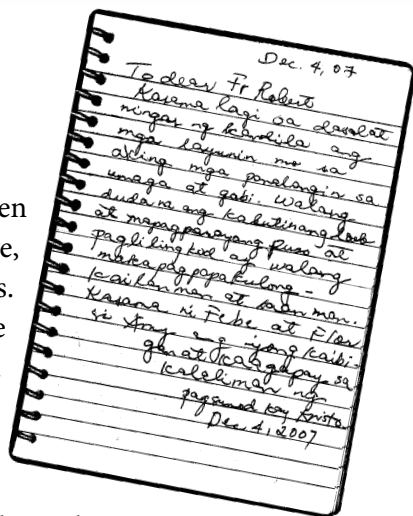 Dec. 4, 07
To dear Fr Robert
Kasama lagi sa dasal at
ningas ng kandila ang
mga layunin mo sa
aking mga panalangin sa
umaga at gabi. Walang
duda na ang kabutinang loob
at mapagparayang puso at
paglilingkod ay walang
makapagpapakulong -
kailanman at saan man.
Kasama ni Febe at Flor
si Amy ang iyong kaibi-
gan at kaagapay sa
kalaliman ng
pagsunod kay Kristo
Dec. 4, 2007
en
e,
s.
e